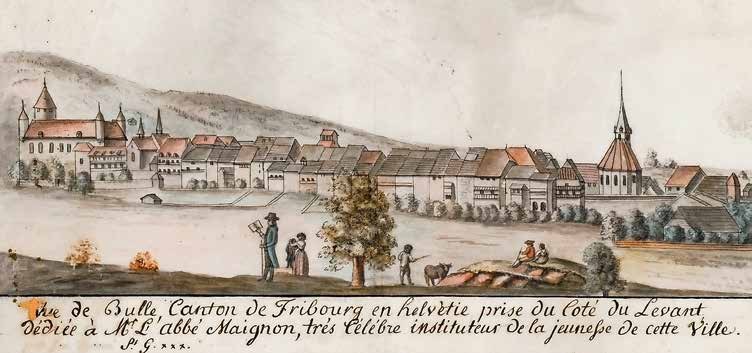 Vue de Bulle, Canton de Fribourg en helvétie prise du Coté du Levant
dédiée à Mr. L'abbé Maignon, trés Célébre instituteur de la jeunesse de cette Ville.
St. G. xxx.